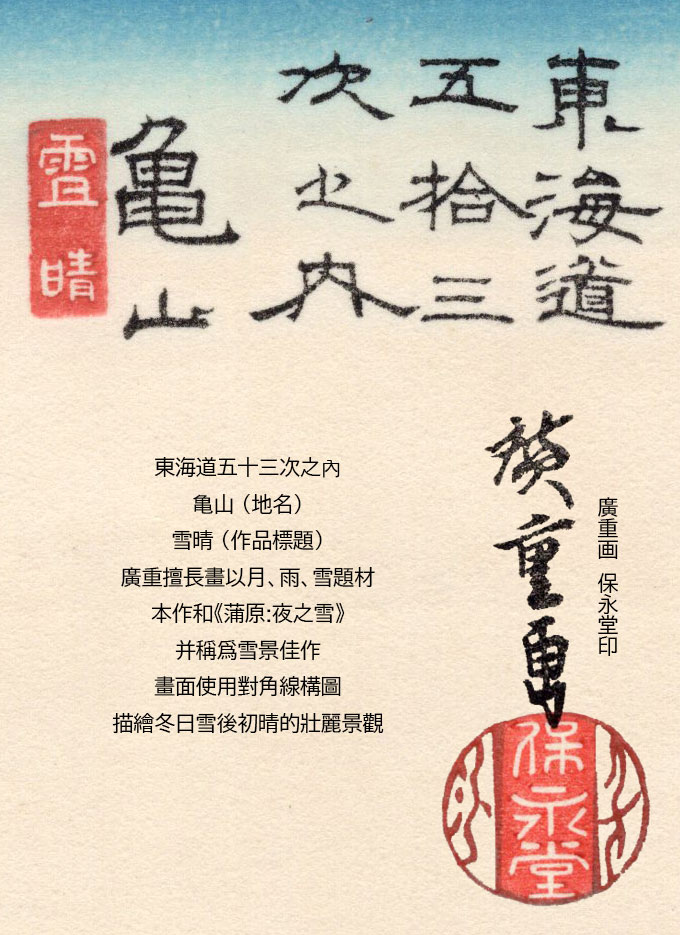 東海道
五拾三
次之内
亀山
雪晴
東海道五十三次之內
亀山（地名）
雪晴（作品標題）
廣重擅長畫以月、雨、雪題材
本作和《蒲原:夜之雪》
并稱爲雪景佳作
畫面使用對角線構圖
描繪冬日雪後初晴的壯麗景觀
廣重画
廣重画 保永堂印
保永堂